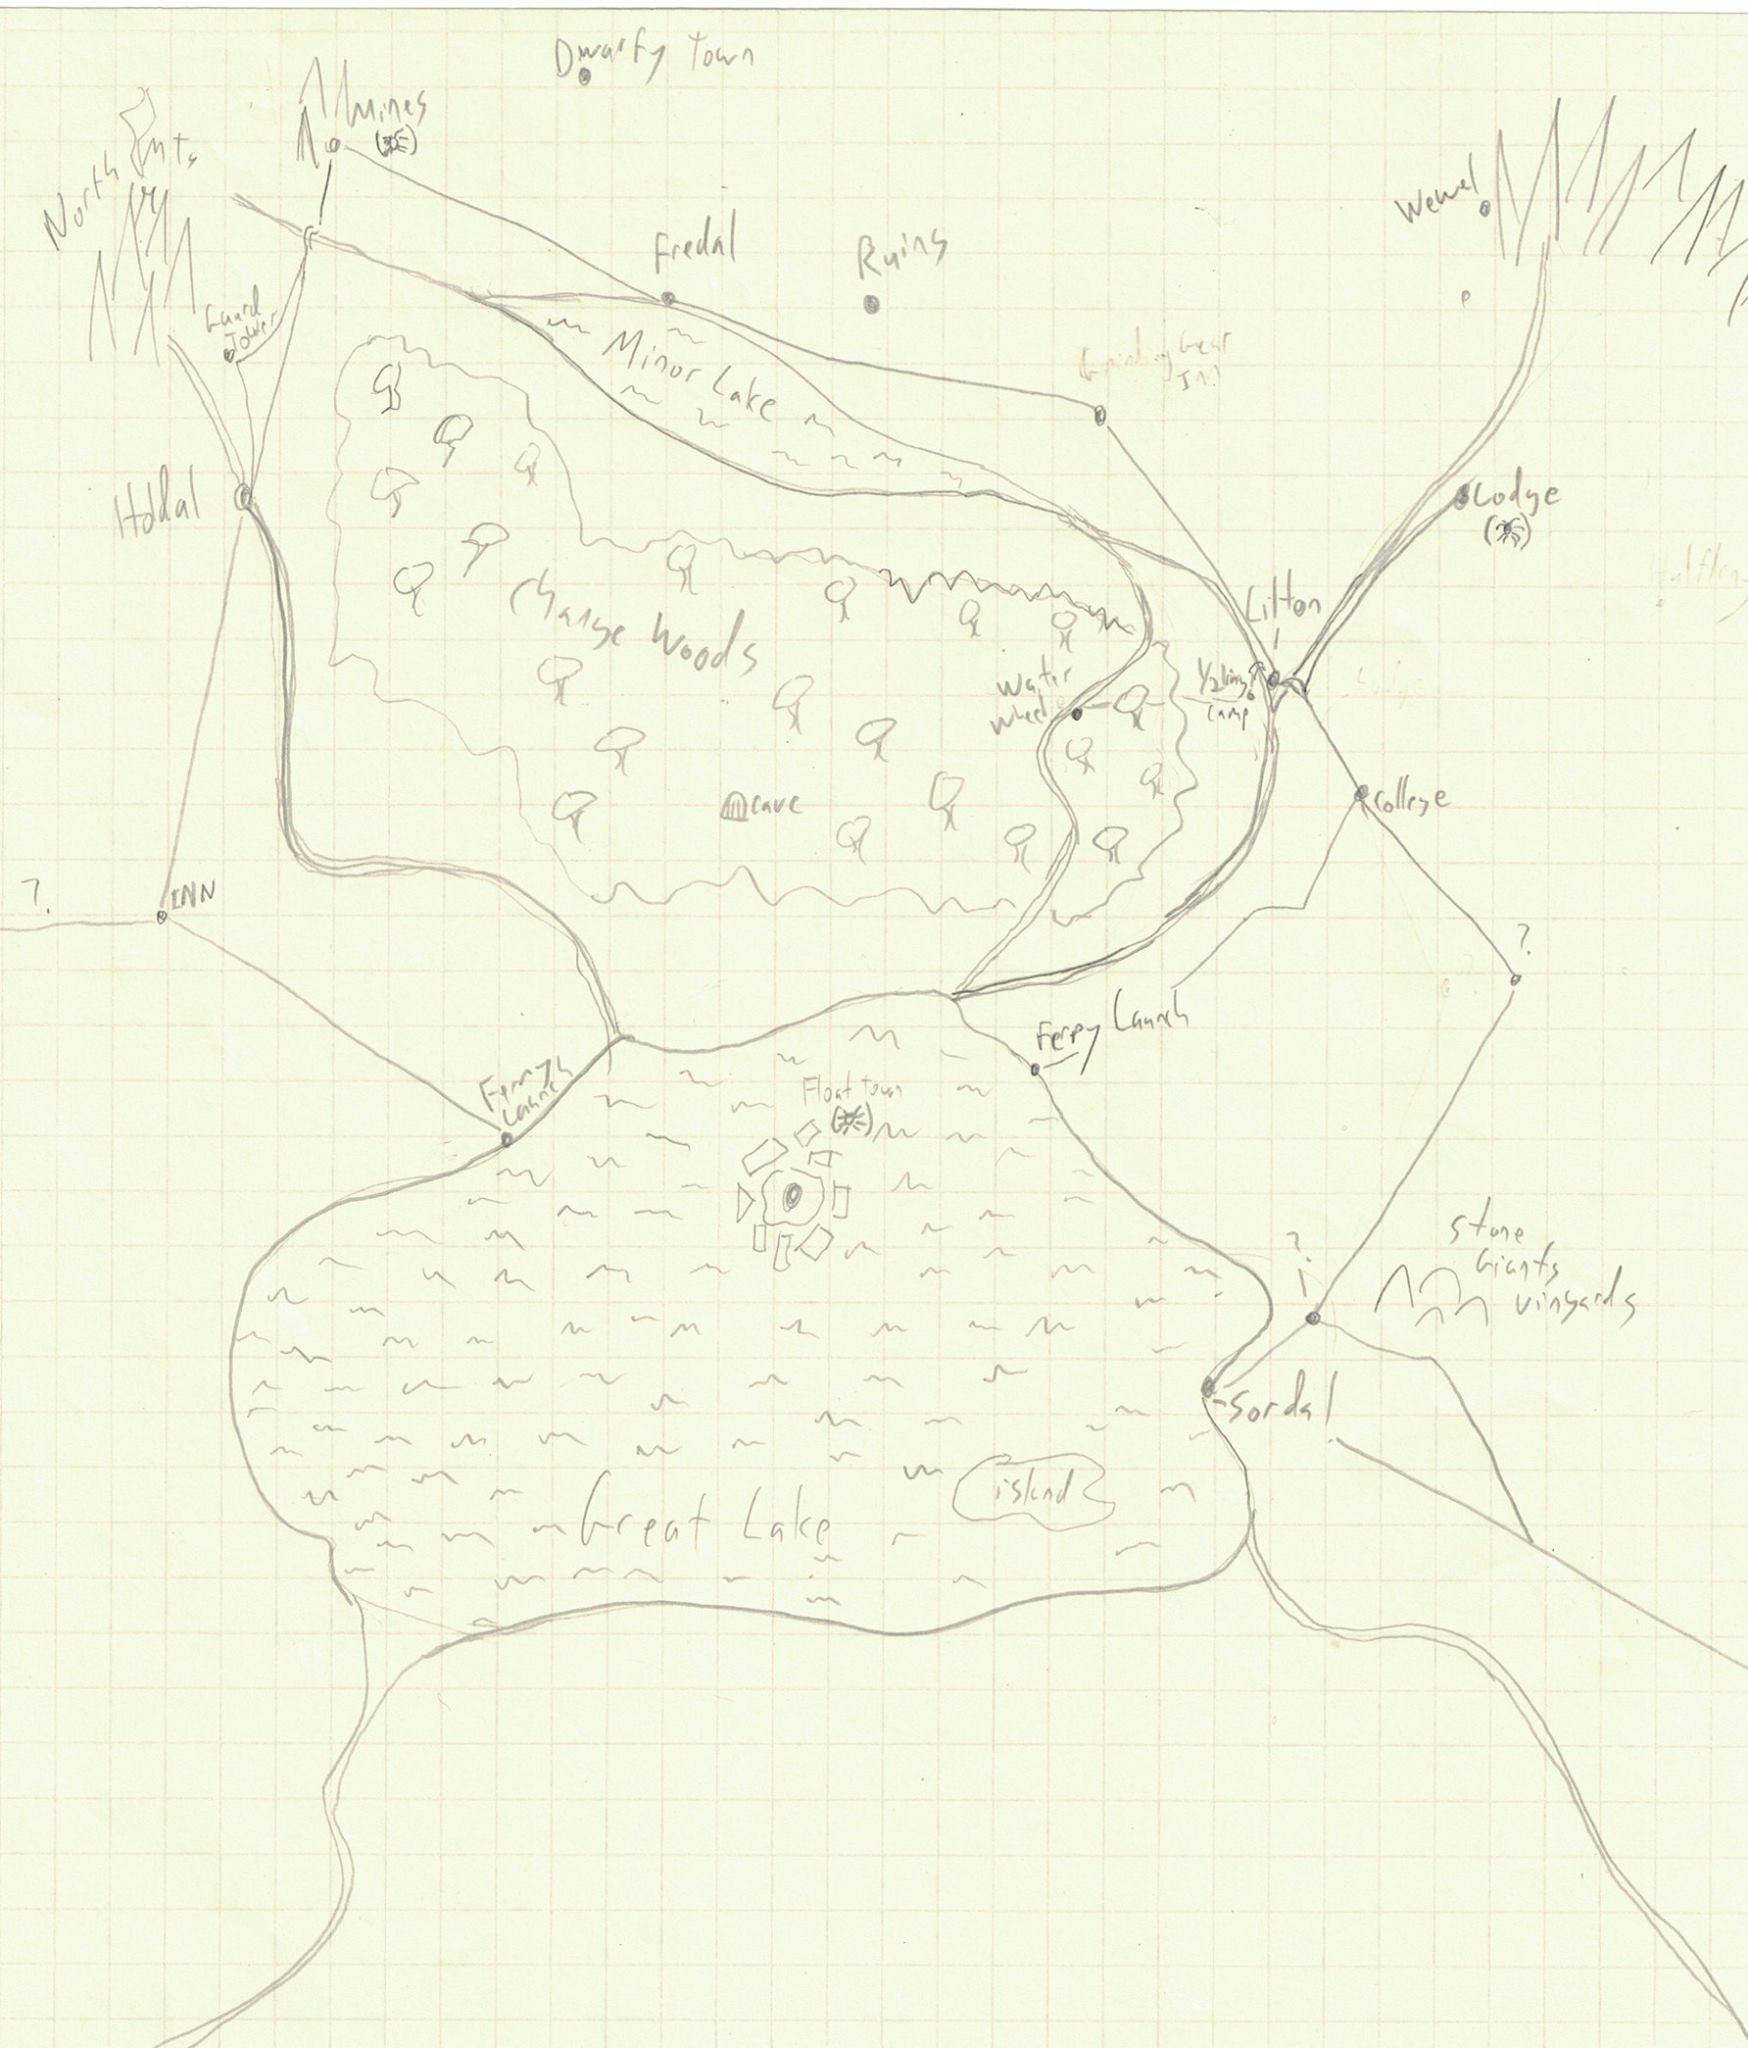 Dwarfy Town
Mines
North Mnts
Fredal
Ruins
Wewel
Guard
Tower
Minor Lake
Grinding Gear
Inn
Hddal
Lodge
Change Woods
Litton
Halfling
Water
Wheel
1/2ling
Camp
cave
College
?
INN
?
Ferry Launch
Ferry
Launch
Float town
?
Stone
Giants
Vinyards
Sordal
island
Great Lake